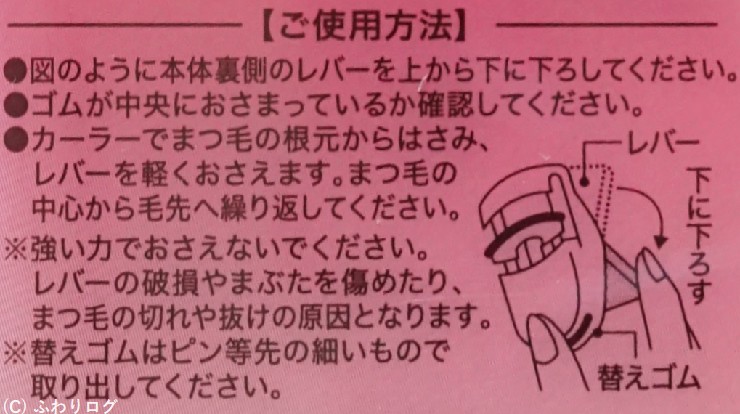 【ご使用方法】
●図のように本体裏側のレバーを上から下に下ろしてください。
●ゴムが中央におさまっているか確認してください。
●カーラーでまつ毛の根元からはさみ、
レバーを軽くおさえます。まつ毛の
中心から毛先へ繰り返してください。
※強い力でおさえないでください。
レバーの破損やまぶたを傷めたり、
まつ毛の切れや抜けの原因となります。
※替えゴムはピン等先の細いもので
取り出してください。
レバー
下に下ろす
替えゴム
(C) ふわりログ